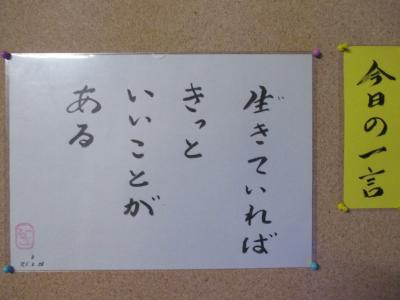 今日の一言
生きていれば
きっと
いいことが
ある